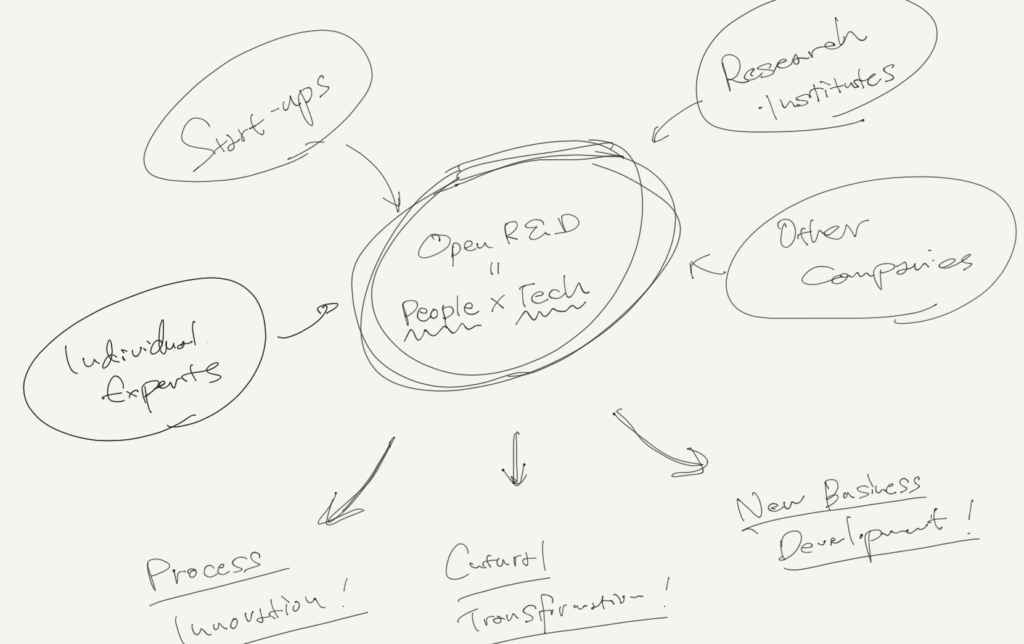 Start-ups
Research
Institutes
Open R&D
=
People x Tech
Other
Companies
Individual
Experts
Process
Innovation!
Cultural
Transformation!
New Business
Development!